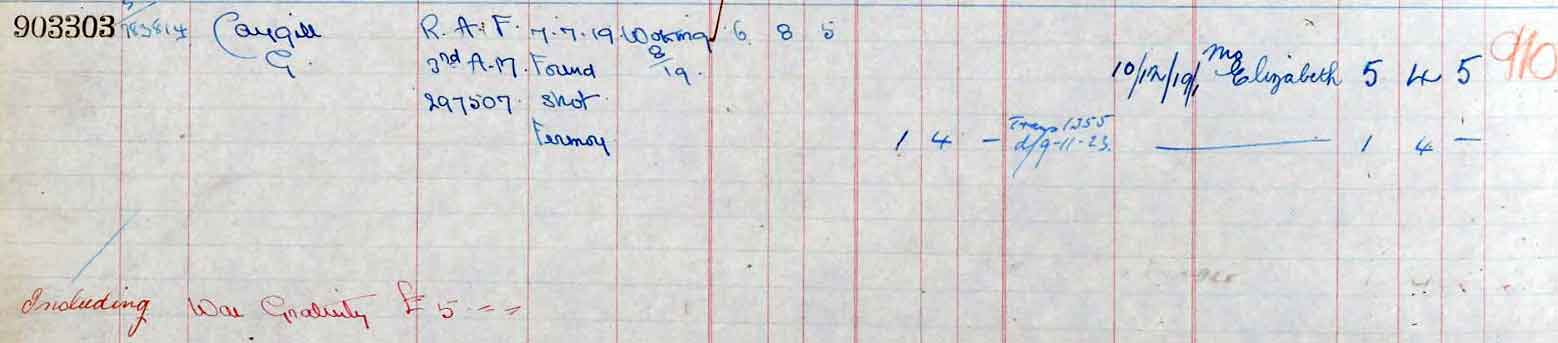 903303 783814 Caygill R. A. F. 7.7.19 Woking 6 8 5
G. 3rd A.M. Found 8/19. 10/12/19 Mo Elizabeth 5 4 5 910
297507 shot
Fermoy 1 4 - d/9-11-23. 1 4 -
Including War Gratuity £5 - =